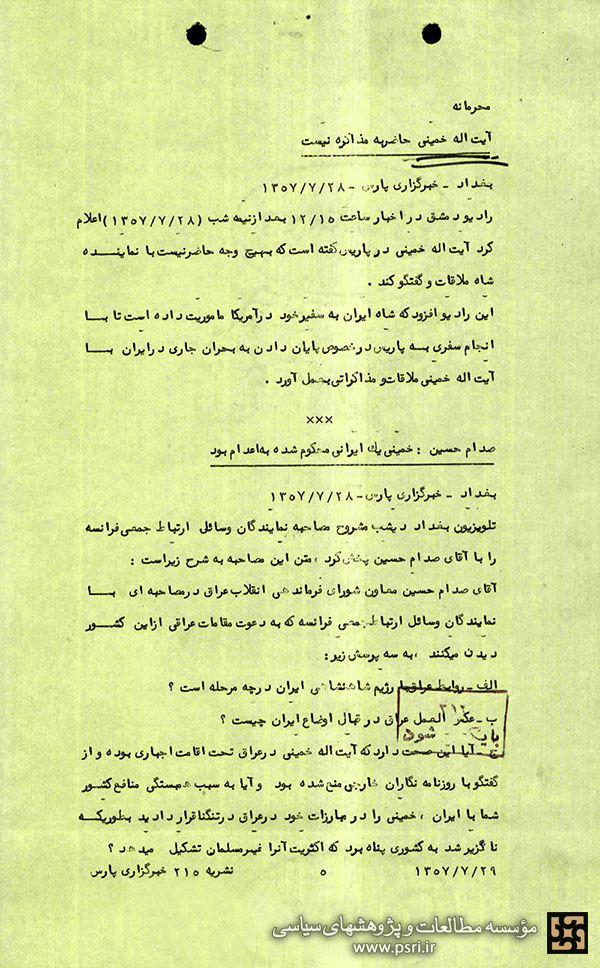 محرمانه
آیت اله خمینی حاضربه مذاکره نیست
بغداد - خبرگزاری پارس - ۱۳۵۷/۷/۲۸
رادیو دمشق در اخبار ساعت ۱۲/۱۵ بعد ازنیمه شب (۱۳۵۷/۷/۲۸) اعلام
کرد آیت اله خمینی در پاریس گفته است که بهیچ وجه حاضرنیست با نماینده
شاه ملاقات و گفتگو کند .
این رادیو افزود که شاه ایران به سفیر خود درآمریکا ماموریت داده است تا با
انجام سفری به پاریس درخصوص پایان دادن به بحران جاری درایران با
آیت اله خمینی ملاقات و مذاکراتی بعمل آورد .
×××
صدام حسین : خمینی یك ایرانی محکوم شده به اعدام بود
بغداد - خبرگزاری پارس - ۱۳۵۷/۷/۲۸
تلویزیون بغداد دیشب مشروح مصاحبه نمایندگان وسائل ارتباط جمعی فرانسه
را با آقای صدام حسین پخش کرد ، متن این مصاحبه به شرح زیراست :
آقای صدام حسین معاون شورای فرماندهی انقلاب عراق درمصاحبه ای با
نمایندگان وسائل ارتباط جمعی فرانسه که به دعوت مقامات عراقی ازاین کشور
دیدن میکنند ، به سه پرسش زیر:
الف - روابط عراق با رژیم شاهنشاهی ایران درچه مرحله است ؟
ب - عکس العمل عراق در قبال اوضاع ایران چیست ؟
شود
ج - آیا این صحت دارد که آیت اله خمینی درعراق تحت اقامت اجباری بوده و از
گفتگو با روزنامه نگاران خارجی منع شده بود و آیا به سبب همبستگی منافع کشور
شما با ایران ، خمینی را در مبارزات خود درعراق درتنگنا قرار دادید بطوریکه
ناگزیر شد به کشوری پناه برد که اکثریت آنرا غیرمسلمان تشکیل میدهد ؟
۱۳۵۷/۷/۲۹ ۵ نشریه ۲۱۵ خبرگزاری پارس
مؤسسه مطالعات و پژوهشهای سیاسی
www.psri.ir